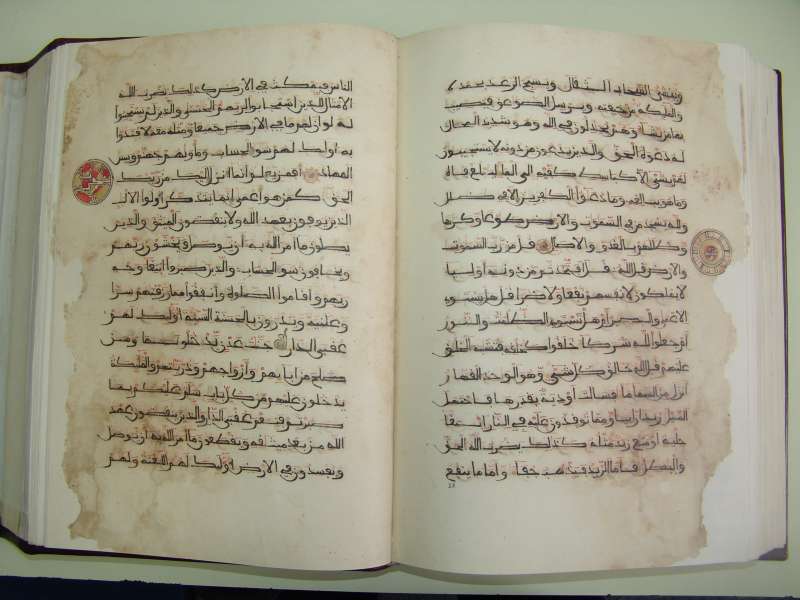 وينشئ السحاب الثقال ويسبح الرعد بحمده
والملئكة من خيفته ويرسل الصوعق فيصيب
بها من يشا وهم يجدلون في الله وهو شديد المحال
له دعوة الحق والذين يدعون من دونه لا يستجيبون
لهم بشي الا كبسط كفيه الى الما ليبلغ فاه
وما هو ببلغه وما دعا الكفرين الا في ضلل
ولله يسجد من في السموت والارض طوعا وكرها
وظللهم بالغدو والاصال قل من رب السموت
والارض قل الله قل افاتخذتم من دونه اوليا
لا يملكون لانفسهم نفعا ولا ضرا قل هل يستوي
الاعمى والبصير ام هل تستوي الظلمت والنور
ام جعلوا لله شركا خلقوا كخلقه فتشبه الخلق
عليهم قل الله خلق كل شي وهو الوحد القهار
انزل من السما ما فسالت اودية بقدرها فاحتمل
السيل زبدا رابيا ومما توقدون عليه في النار ابتغا
حلية او متع زبد مثله كذلك يضرب الله الحق
والبطل فاما الزبد فيذهب جفا واما ما ينفع
الناس فيمكث في الارض كذلك يضرب الله
الامثال للذين استجابوا لربهم الحسنى والذين لم يستجيبوا
له لو ان لهم ما في الارض جميعا ومثله معه لافتدوا
به اولئك لهم سو الحساب وماويهم جهنم وبيس
المهاد افمن يعلم انما انزل اليك من ربك
الحق كمن هو اعمى انما يتذكر اولوا الالبب
الذين يوفون بعهد الله ولا ينقضون الميثق والذين
يصلون ما امر الله به ان يوصل ويخشون ربهم
ويخافون سو الحساب والذين صبروا ابتغا وجه
ربهم واقاموا الصلوة وانفقوا مما رزقنهم سرا
وعلنية ويدرون بالحسنة السيئة اولئك لهم
عقبى الدار جنت عدن يدخلونها ومن
صلح من ابايهم وازوجهم وذريتهم والملئكة
يدخلون عليهم من كل باب سلم عليكم بما
صبرتم فنعم عقبى الدار والذين ينقضون عهد
الله من بعد ميثقه ويقطعون ما امر الله به ان يوصل
ويفسدون في الارض اولئك لهم اللعنة ولهم